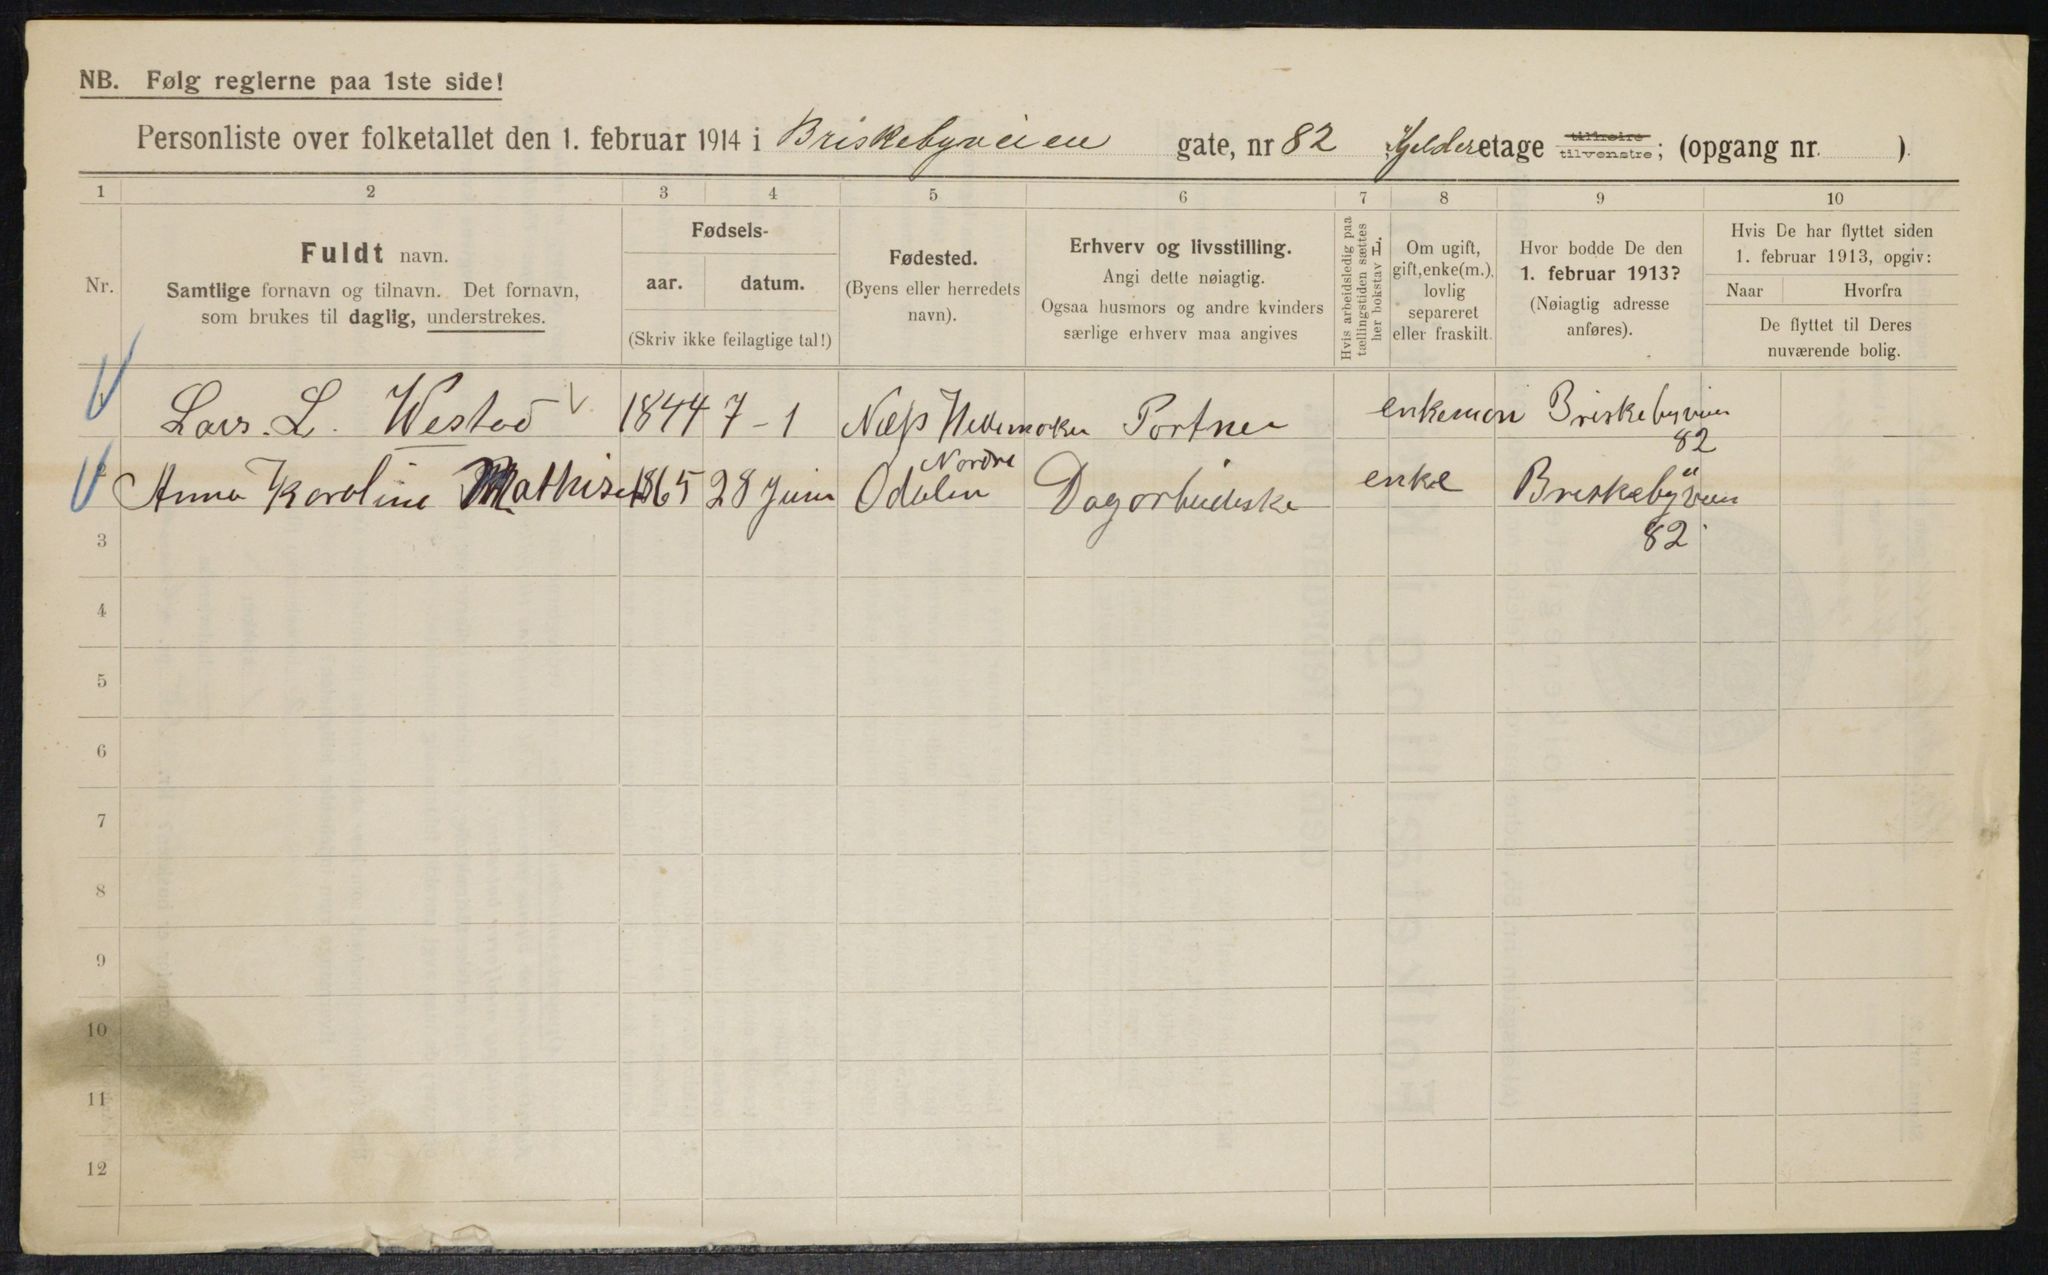 NB. Følg reglerne paa 1ste side!
Personliste over folketallet den 1. februar 1914 i Briskebyveien gate, nr 82 Kjelder etage tilhøire tilvenstre; (opgang nr. ).
1 2 3 4 5 6 7 8 9 10
Nr.
Fuldt navn.
Samtlige fornavn og tilnavn. Det fornavn,
som brukes til daglig, understrekes.
Fødsels-
aar. datum.
(Skriv ikke feilagtige tal!)
Fødested.
(Byens eller herredets
navn).
Erhverv og livsstilling.
Angi dette nøiagtig.
Ogsaa husmors og andre kvinders
særlige erhverv maa angives
Hvis arbeidsledig paa
tællingstiden sættes
her bokstav L.
Om ugift,
gift, enke(m.),
lovlig
separeret
eller fraskilt.
Hvor bodde De den
1. februar 1913?
(Nøiagtig adresse
anføres).
Hvis De har flyttet siden
1. februar 1913, opgiv:
Naar Hvorfra
De flyttet til Deres
nuværende bolig.
Lars. L. Westad 1844 7-1 Næss Hedemarken Portner enkeman Briskebyveien
82
Anna Karoline Mathisen 1865 28 Juni Nordre
Odalen Dagarbeiderske enke Briskebyveien
82
3
4
5
6
7
8
9
10
11
12